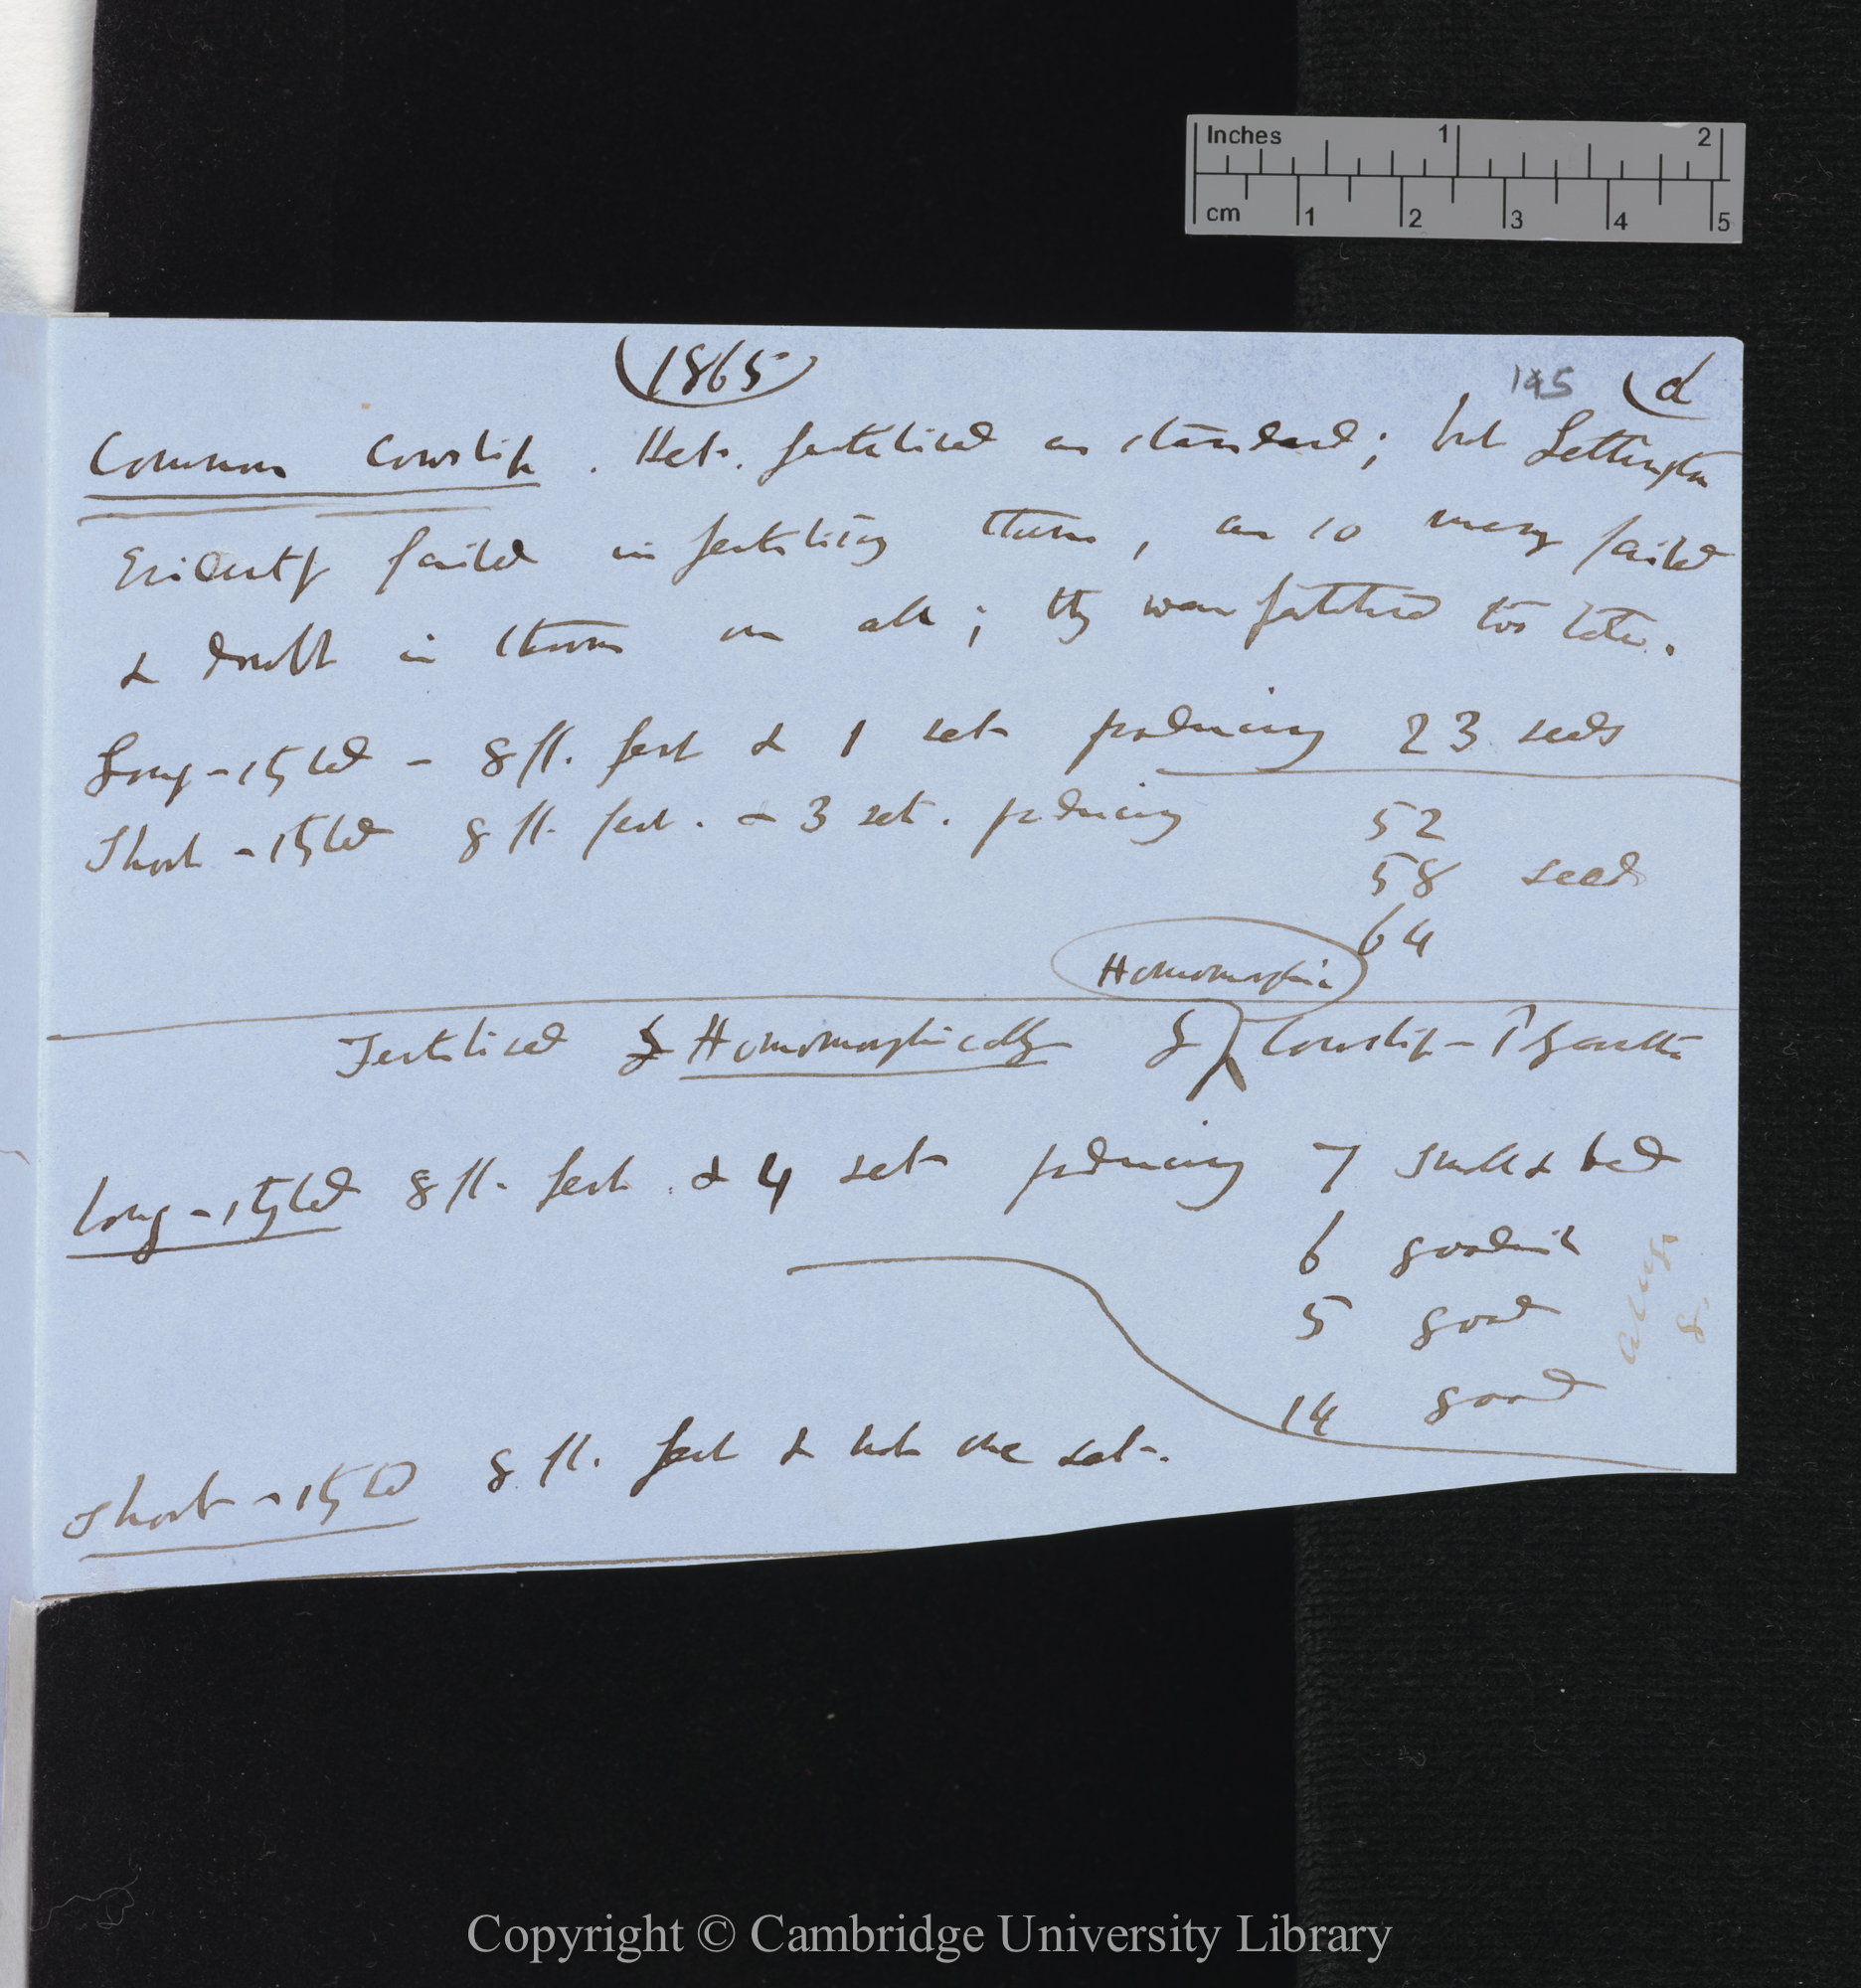 Inches 1 2
cm 1 2 3 4 5
(1865)
195 (d
Common Cowslip. Het. fertilised as standard; but Lettington
Evidently failed in fertilising them, as so many failed
& doubt in them on all; they were fertilised too late.
Long-styled - 8 fl. fert & 1 set producing 23 seeds
Short-styled 8 fl. fert. & 3 set. producing 52
58 seeds
64
Homomorphic
Fertilised Homomorphically Cowslip -
Long-styled 8 fl. fert & 4 set producing 7 small & bad
6 goodish
5 good
14 good
average
8.
Short-styled 8 fl. fert & not one set.
Copyright © Cambridge University Library